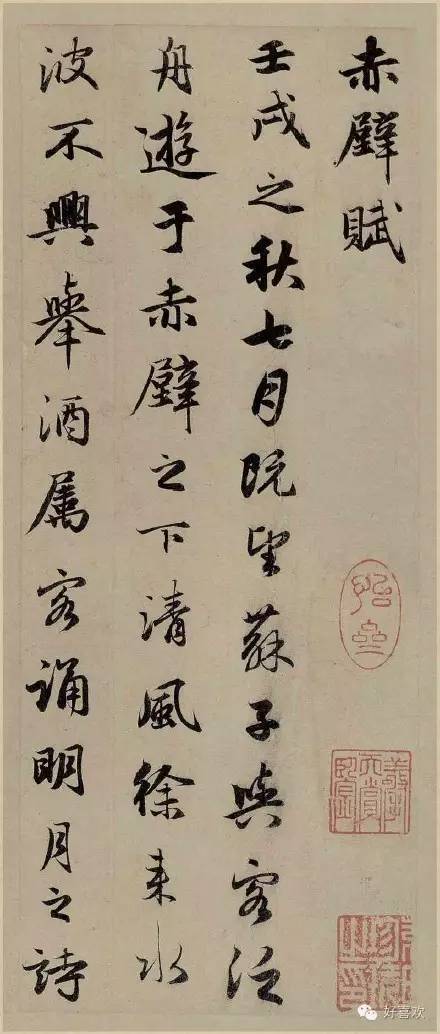 赤壁賦
壬戌之秋七月既望蘇子與客泛
舟遊于赤壁之下清風徐来水
波不興舉酒属客誦明月之詩
好喜欢